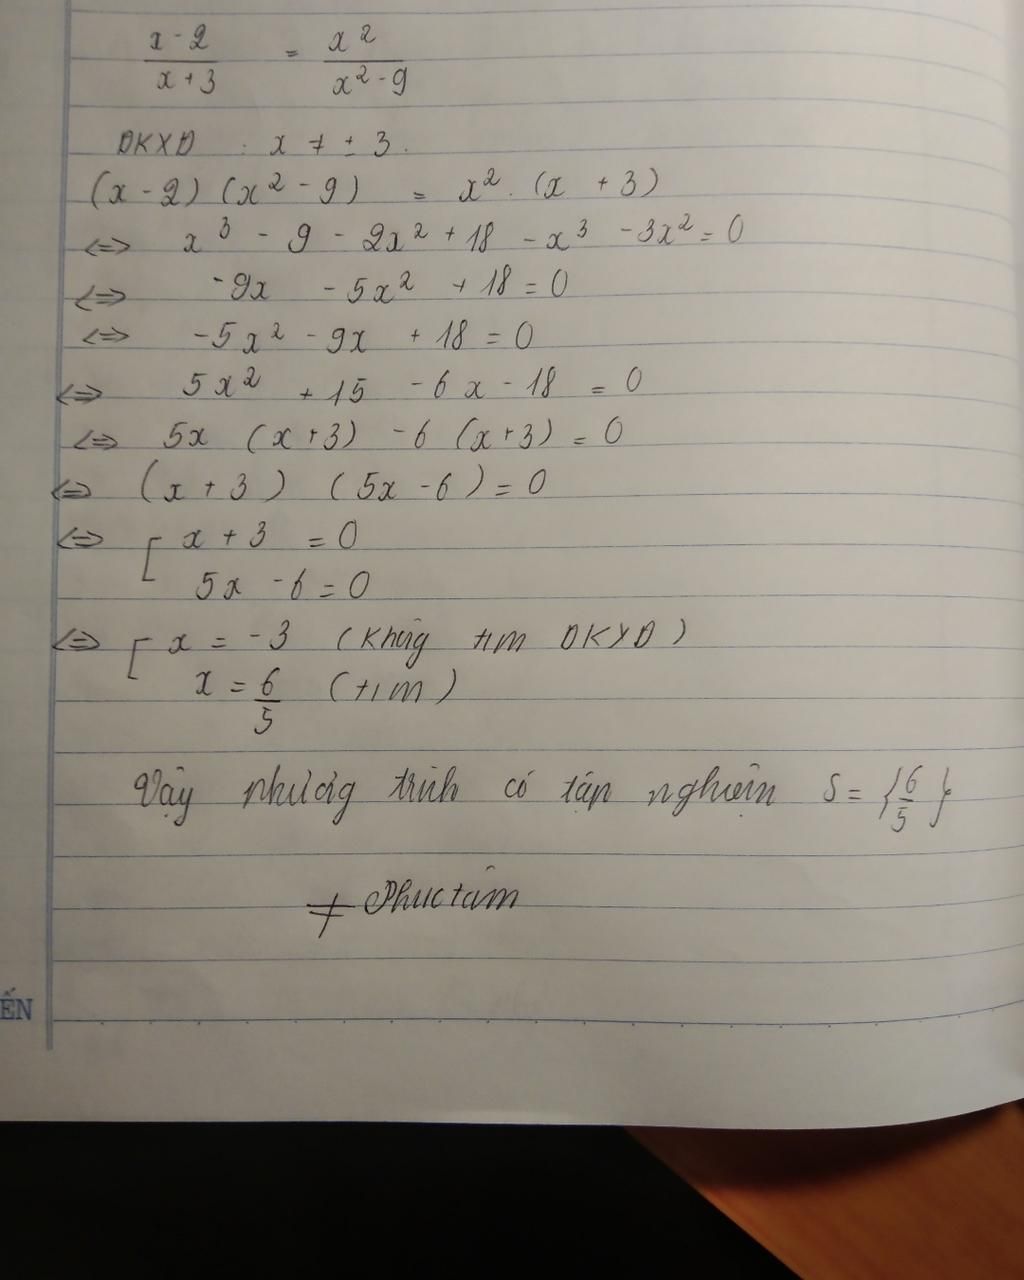 x - 2 / x + 3 = x² / x² - 9
ĐKXĐ : x ≠ ± 3.
(x - 2) (x² - 9) = x² . (x + 3)
<=> x³ - 9 - 2x² + 18 - x³ - 3x² = 0
<=> -9x - 5x² + 18 = 0
<=> -5x² - 9x + 18 = 0
<=> 5x² + 15 - 6x - 18 = 0
<=> 5x (x + 3) - 6 (x + 3) = 0
<=> (x + 3) (5x - 6) = 0
<=> [ x + 3 = 0
5x - 6 = 0
<=> [ x = -3 (không t/m ĐKXĐ)
x = 6/5 (t/m)
Vậy phương trình có tập nghiệm S = {6/5}
≠ Phuctâm
ẾN